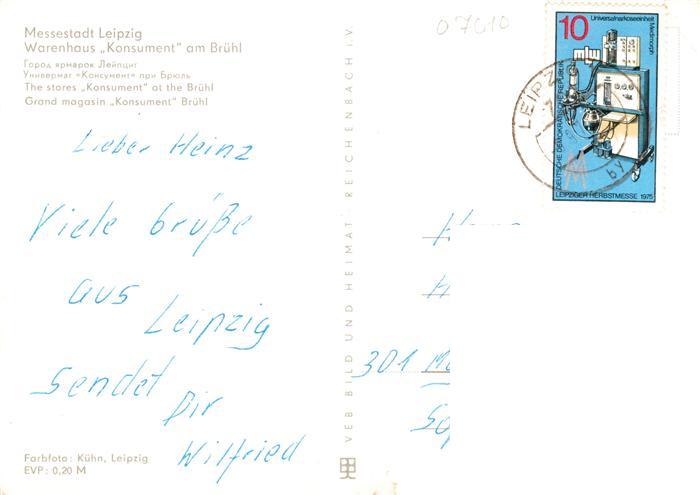 Messestadt Leipzig
Warenhaus „Konsument" am Brühl
Город ярмарок Лейпциг
Универмаг «Консумент» при Брюль
The stores „Konsument" at the Brühl
Grand magasin „Konsument" Brühl
Lieber Heinz
Viele Grüße
aus Leipzig
sendet Dir
Wilfried
Farbfoto: Kühn, Leipzig
EVP: 0,20 M
VEB BILD UND HEIMAT REICHENBACH i.V.
07010
10
Universalnarkoseeinheit Medimorph
DEUTSCHE DEMOKRATISCHE REPUBLIK
LEIPZIGER HERBSTMESSE 1975
LEIPZ
by
301